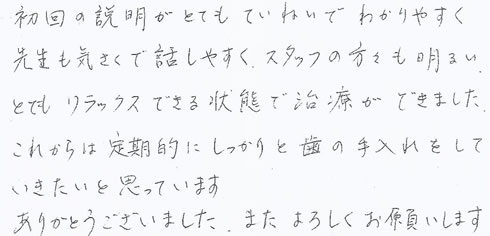 初回の説明がとてもていねいでわかりやすく
先生も気さくで話しやすく、スタッフの方々も明るい、
とてもリラックスできる状態で治療ができました。
これからは定期的にしっかりと歯の手入れをして
いきたいと思っています
ありがとうございました。またよろしくお願いします